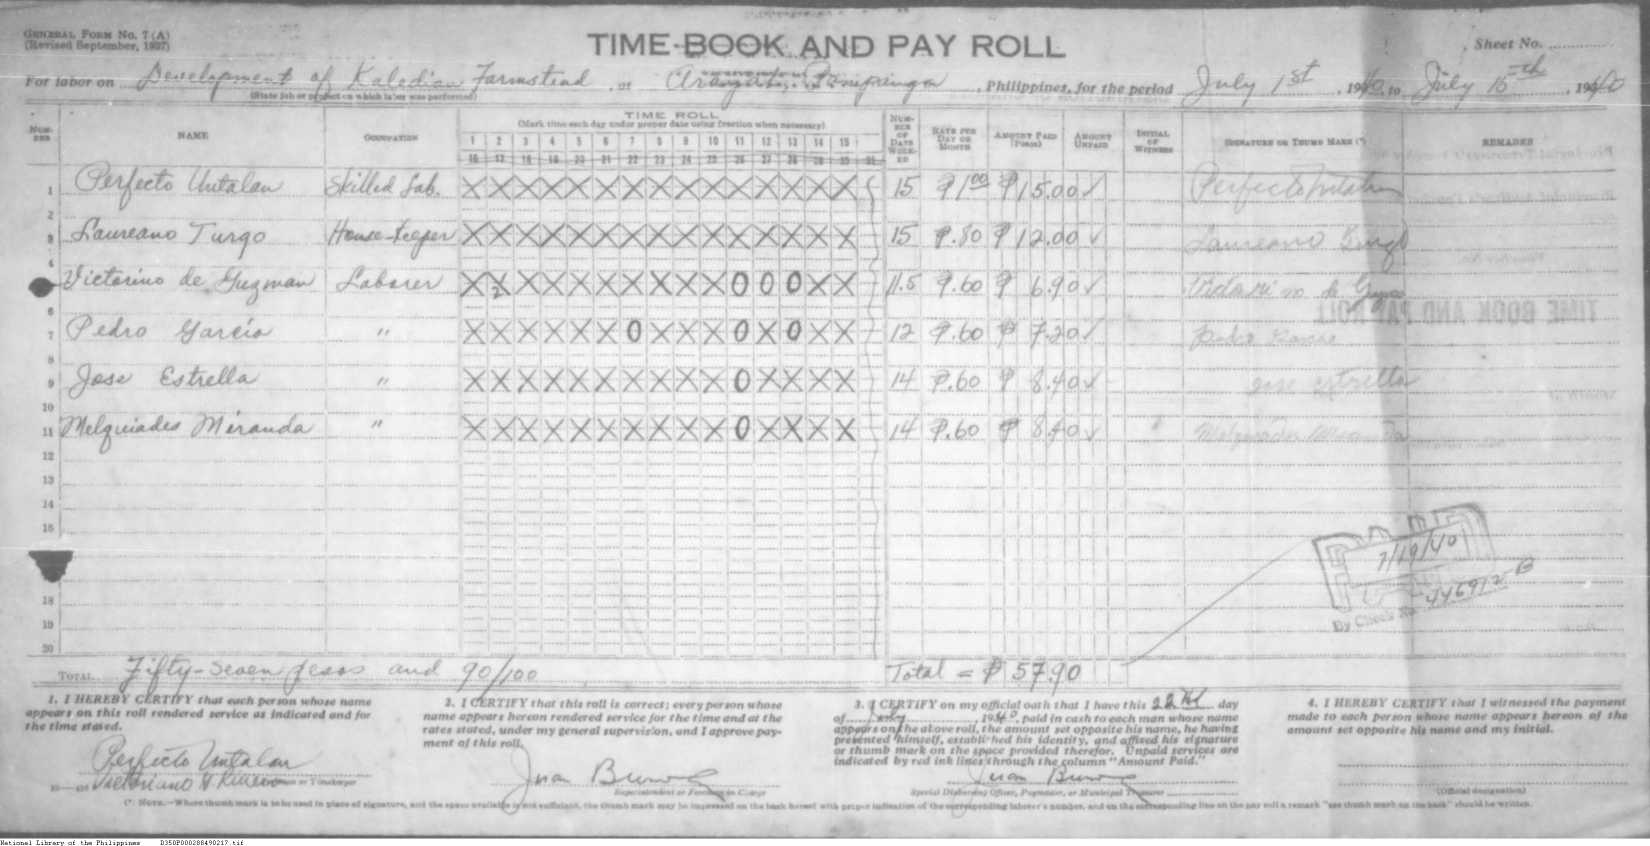 GENERAL FORM NO. 7 (A)
(Revised September, 1937)
TIME-BOOK AND PAY ROLL
Sheet No.
For labor on Development of Kaledian Farmstead, at Arayat, Pampanga, Philippines, for the period July 1st, 1940, to July 15th, 1940
(State job or project on which labor was performed)
NUMBER NAME OCCUPATION TIME ROLL NUMBER OF DAYS WORKED RATE PER DAY OR MONTH AMOUNT PAID (PESOS) AMOUNT UNPAID INITIAL OF WITNESS SIGNATURE OR THUMB MARK (*) REMARKS
(Mark time each day under proper date using fraction when necessary)
1 2 3 4 5 6 7 8 9 10 11 12 13 14 15
16 17 18 19 20 21 22 23 24 25 26 27 28 29 30 31
1 Perfecto Untalan Skilled Lab. X X X X X X X X X X X X X X X 15 ₱1.00 ₱ 15.00 ✓ Perfecto Untalan
2
3 Laureano Turgo House-Keeper X X X X X X X X X X X X X X X 15 ₱.80 ₱ 12.00 ✓ Laureano
4
Victorino de Guzman Laborer X X X X X X X X X X 0 0 0 X X 11.5 ₱.60 ₱ 6.90 ✓ de
6
7 Pedro Garcia " X X X X X X 0 X X X 0 X 0 X X 12 ₱.60 ₱ 7.20 ✓ Pedro
8
9 Jose Estrella " X X X X X X X X X X 0 X X X X 14 ₱.60 ₱ 8.40 ✓ Jose Estrella
10
11 Melquiades Miranda " X X X X X X X X X X 0 X X X X 14 ₱.60 ₱ 8.40 ✓ Melquiades Miranda
12
13
14
15
18
19
20
7/19/40
By Check No. 446912-B
TOTAL Fifty-seven pesos and 90/100 Total = ₱ 57.90
1. I HEREBY CERTIFY that each person whose name
appears on this roll rendered service as indicated and for
the time stated.
Perfecto Untalan
Victoriano
or Timekeeper
2. I CERTIFY that this roll is correct; every person whose
name appears hereon rendered service for the time and at the
rates stated, under my general supervision, and I approve pay-
ment of this roll.
Juan
Superintendent or Foreman in Charge
3. I CERTIFY on my official oath that I have this 22nd day
of July, 1940, paid in cash to each man whose name
appears on the above roll, the amount set opposite his name, he having
presented himself, established his identity, and affixed his signature
or thumb mark on the space provided therefor. Unpaid services are
indicated by red ink lines through the column "Amount Paid."
Juan
Special Disbursing Officer, Paymaster, or Municipal Treasurer
4. I HEREBY CERTIFY that I witnessed the payment
made to each person whose name appears hereon of the
amount set opposite his name and my initial.
(Official designation)
(*) NOTE.—Where thumb mark is to be used in place of signature, and the space available is not sufficient, the thumb mark may be impressed on the back hereof with proper indication of the corresponding laborer's number, and on the corresponding line on the pay roll a remark "see thumb mark on the back" should be written.
National Library of the Philippines D350P000288490217.tif